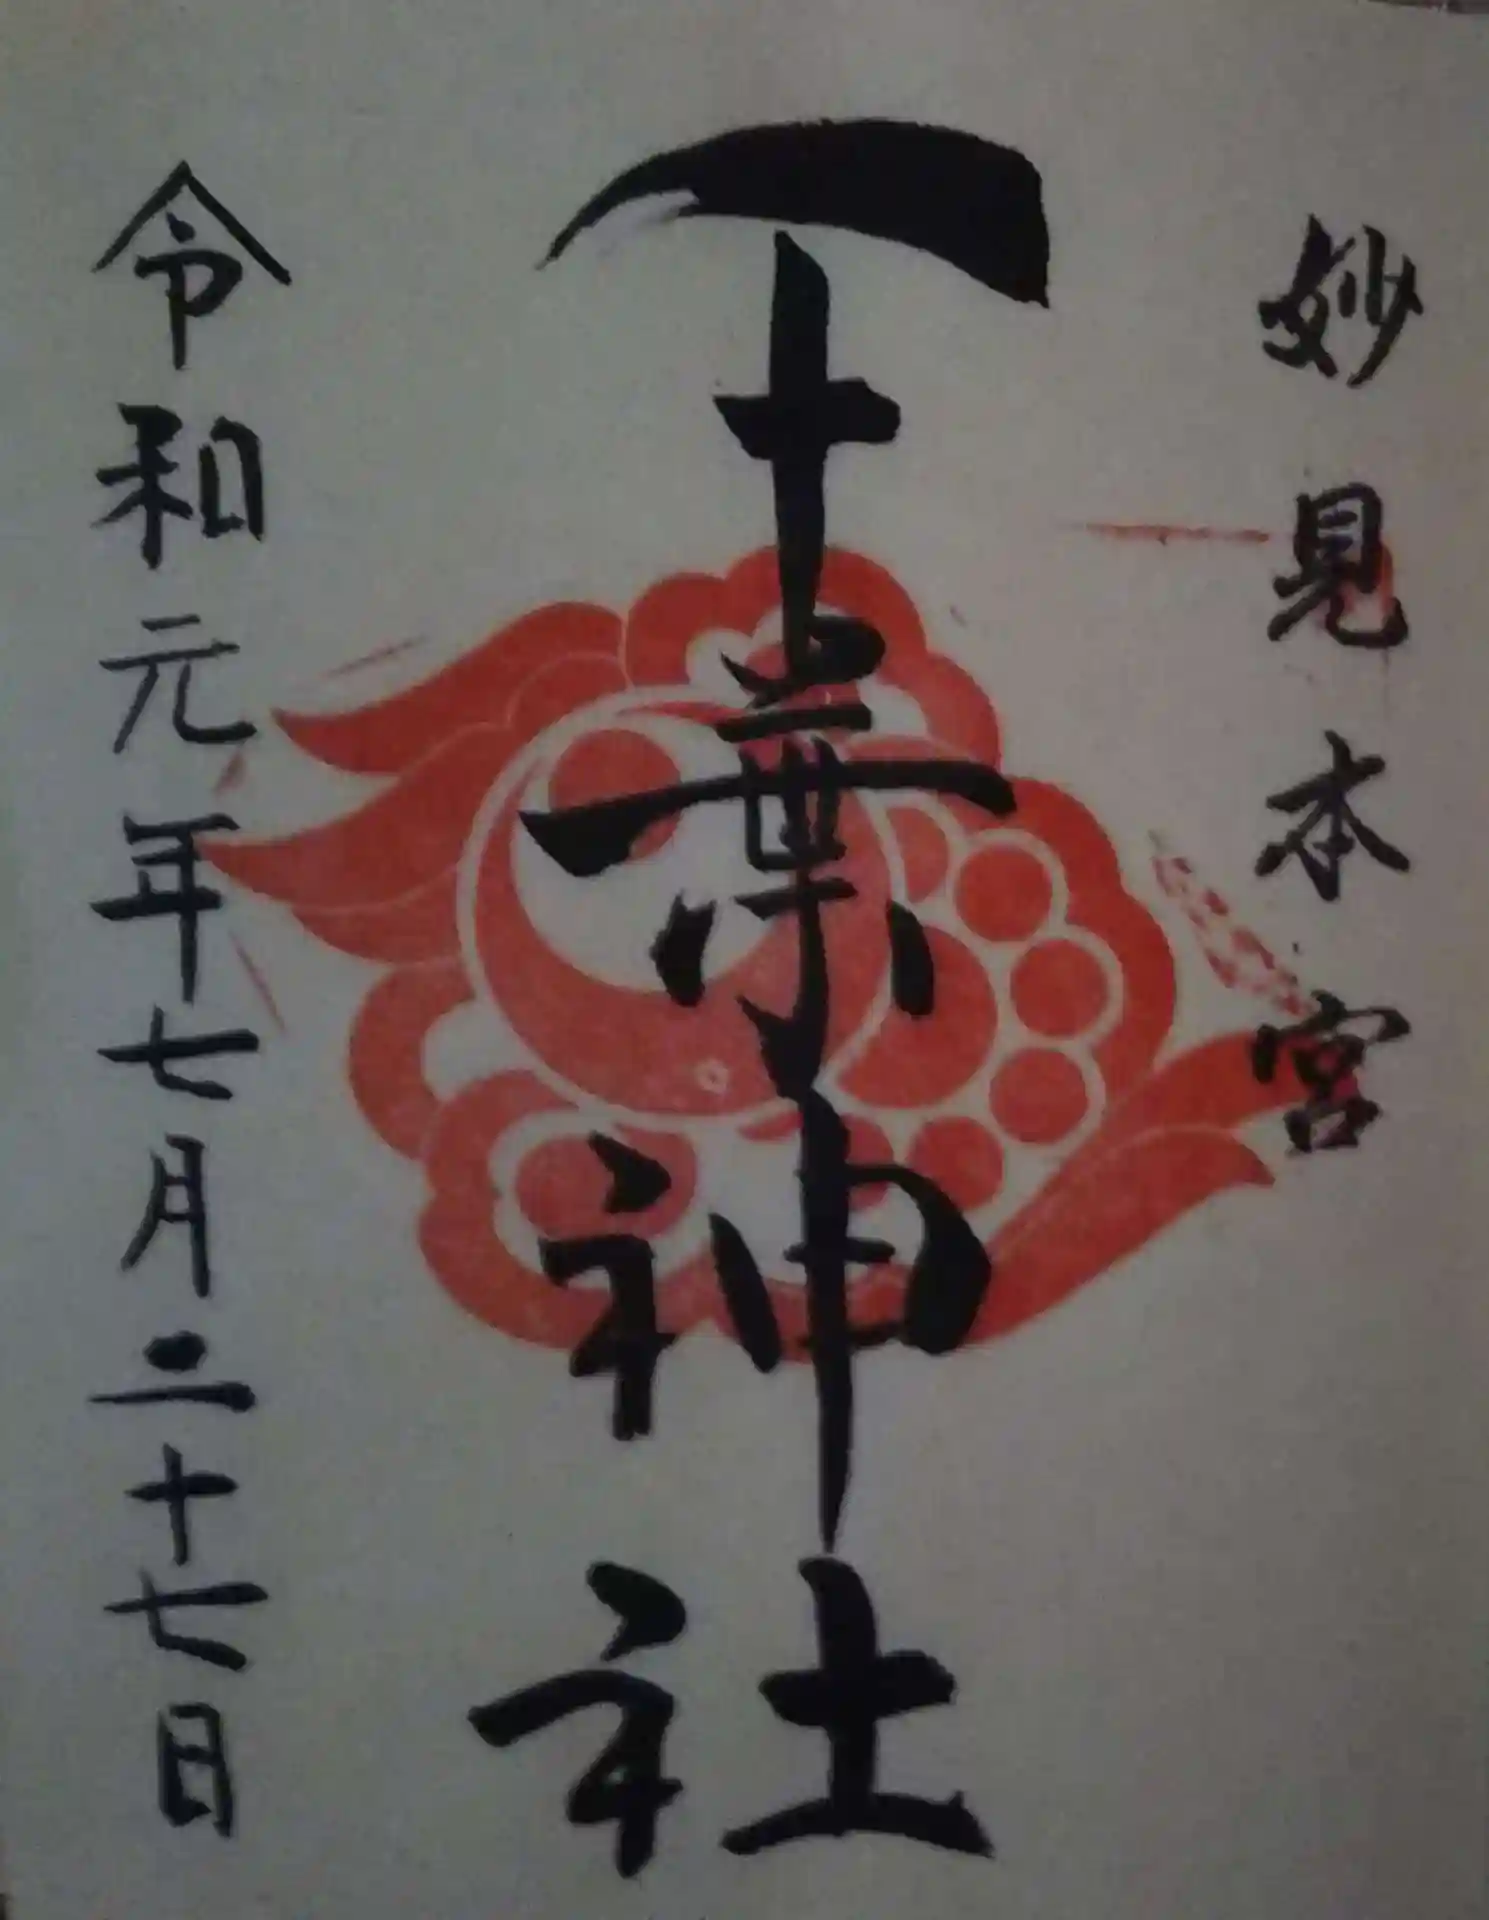 妙見本宮
千葉神社
令和元年七月二十七日